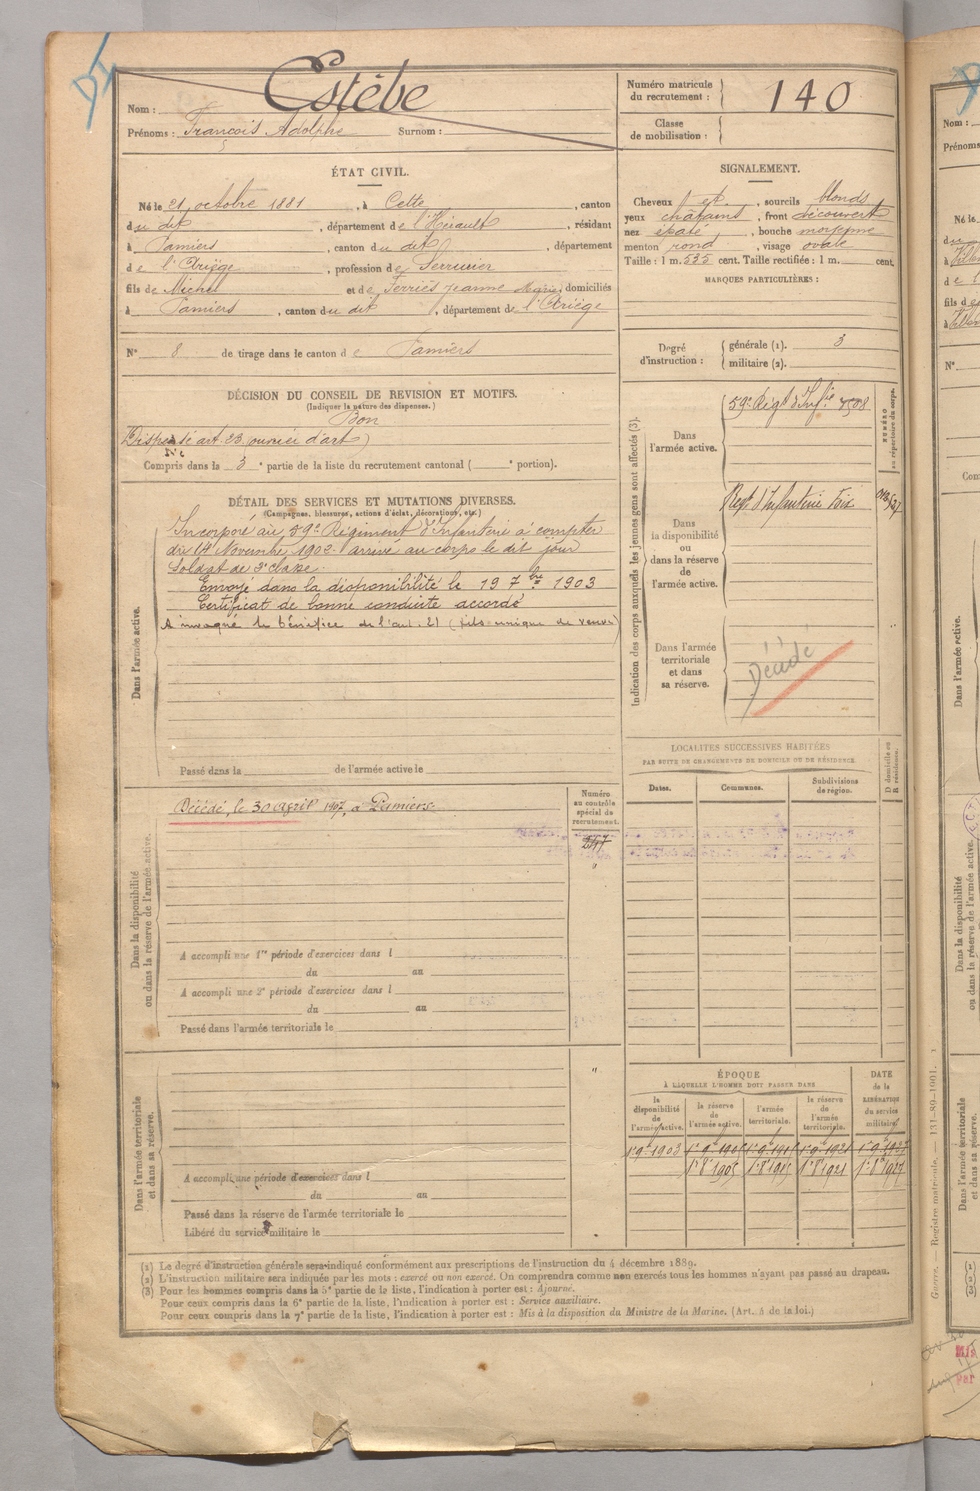 Nom : Estèbe
Prénoms : François Adolphe Surnom :
Numéro matricule du recrutement : 140
Classe de mobilisation :
ÉTAT CIVIL.
Né le 21 octobre 1881, à Cette, canton
du dit, département de l'Hérault, résidant
à Pamiers, canton du dit, département
de l'Ariège, profession de Serrurier
fils de Michel et de Ferriès Jeanne Marie, domiciliés
à Pamiers, canton du dit, département de l'Ariège
N° 8 de tirage dans le canton de Pamiers
SIGNALEMENT.
Cheveux et sourcils blonds
yeux châtains, front découvert
nez épaté, bouche moyenne
menton rond, visage ovale
Taille : 1 m. 535 cent. Taille rectifiée : 1 m. cent.
MARQUES PARTICULIÈRES :
Degré d'instruction : générale (1). 3
militaire (2).
DÉCISION DU CONSEIL DE REVISION ET MOTIFS.
(Indiquer la nature des dispenses.)
Bon
Dispensé art. 23 ouvrier d'art)
Compris dans la 3e partie de la liste du recrutement cantonal ( e portion).
DÉTAIL DES SERVICES ET MUTATIONS DIVERSES.
(Campagnes, blessures, actions d'éclat, décorations, etc.)
Dans l'armée active.
Incorporé au 59e Régiment d'Infanterie à compter
du 14 Novembre 1902. arrivé au corps le dit jour
Soldat de 2e classe.
Envoyé dans la disponibilité le 19 7bre 1903
Certificat de bonne conduite accordé
A invoqué le bénéfice de l'art. 21 (fils unique de veuve)
Passé dans la de l'armée active le
Indication des corps auxquels les jeunes gens sont affectés (3).
Dans l'armée active.
59e Régt d'Infie
NUMÉRO au répertoire du corps.
Dans la disponibilité ou dans la réserve de l'armée active.
Régt d'Infanterie Foix
Dans l'armée territoriale et dans sa réserve.
Décédé
LOCALITÉS SUCCESSIVES HABITÉES
PAR SUITE DE CHANGEMENTS DE DOMICILE OU DE RÉSIDENCE.
Dates. Communes. Subdivisions de région. D domicile ou R résidence.
Dans la disponibilité ou dans la réserve de l'armée active.
Décédé, le 30 avril 1907, à Pamiers.
Numéro au contrôle spécial de recrutement.
A accompli une 1re période d'exercices dans l
du au
A accompli une 2e période d'exercices dans l
du au
Passé dans l'armée territoriale le
Dans l'armée territoriale et dans sa réserve.
A accompli une période d'exercices dans l
du au
Passé dans la réserve de l'armée territoriale le
Libéré du service militaire le
ÉPOQUE
À LAQUELLE L'HOMME DOIT PASSER DANS
la disponibilité de l'armée active. la réserve de l'armée active. l'armée territoriale. la réserve de l'armée territoriale. DATE de la LIBÉRATION du service militaire.
(1) Le degré d'instruction générale sera indiqué conformément aux prescriptions de l'instruction du 4 décembre 1889.
(2) L'instruction militaire sera indiquée par les mots : exercé ou non exercé. On comprendra comme non exercés tous les hommes n'ayant pas passé au drapeau.
(3) Pour les hommes compris dans la 5e partie de la liste, l'indication à porter est : Ajourné.
Pour ceux compris dans la 6e partie de la liste, l'indication à porter est : Service auxiliaire.
Pour ceux compris dans la 7e partie de la liste, l'indication à porter est : Mis à la disposition du Ministre de la Marine. (Art. 4 de la loi.)